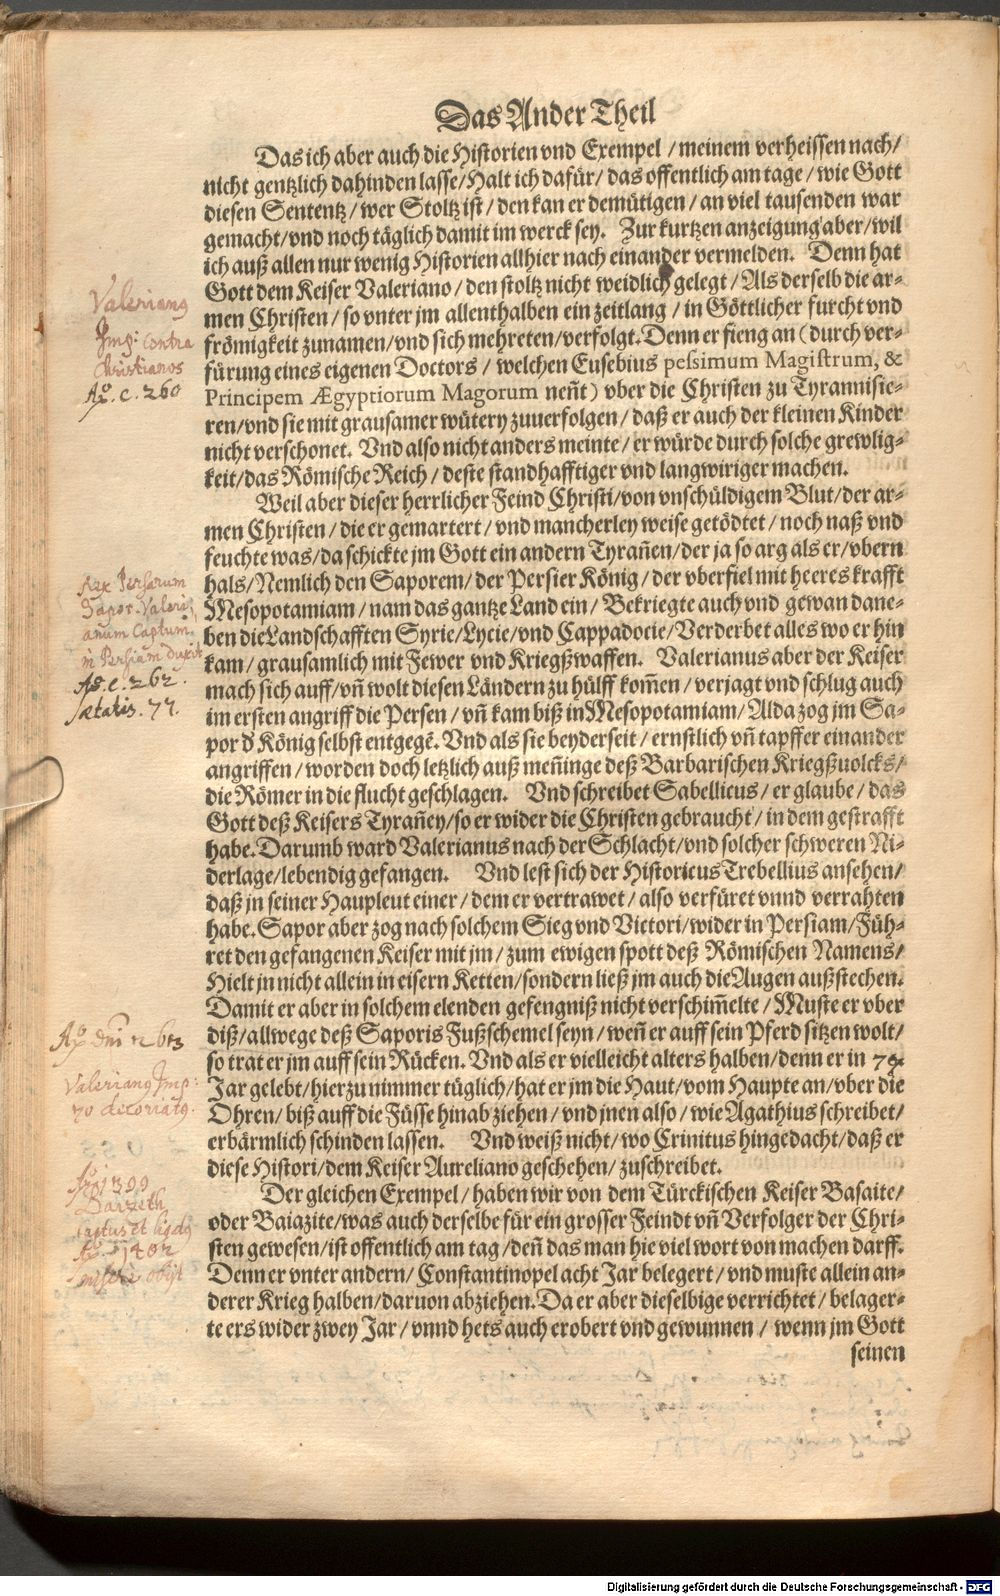 Das Ander Theil
Das ich aber auch die Historien vnd Exempel / meinem verheissen nach/
nicht gentzlich dahinden lasse/Halt ich dafür/ das offentlich am tage / wie Gott
diesen Sententz / wer Stoltz ist / den kan er demütigen / an viel tausenden war
gemacht/vnd noch täglich damit im werck sey. Zur kurtzen anzeigung aber/wil
ich auß allen nur wenig Historien allhier nach einander vermelden. Denn hat
Gott dem Keiser Valeriano / den stoltz nicht weidlich gelegt / Als derselb die ar-
men Christen / so vnter jm allenthalben ein zeitlang / in Göttlicher furcht vnd
frömigkeit zunamen/vnd sich mehreten/verfolgt. Denn er fieng an (durch ver-
fürung eines eigenen Doctors / welchen Eusebius pessimum Magistrum, &
Principem Ægyptiorum Magorum neñt) vber die Christen zu Tyrannisie-
ren/vnd sie mit grausamer wütery zuuerfolgen / daß er auch der kleinen Kinder
nicht verschonet. Vnd also nicht anders meinte / er würde durch solche grewlig-
keit/das Römische Reich / deste standhafftiger vnd langwiriger machen.
Weil aber dieser herrlicher Feind Christi/von vnschüldigem Blut/der ar-
men Christen / die er gemartert / vnd mancherley weise getödtet / noch naß vnd
feuchte was/da schickte jm Gott ein andern Tyrañen/der ja so arg als er/vbern
hals/Nemlich den Saporem/der Persier König / der vberfiel mit heeres krafft
Mesopotamiam / nam das gantze Land ein / Bekriegte auch vnd gewan dane-
ben die Landschafften Syrie/Lycie/vnd Cappadocie/Verderbet alles wo er hin
kam/ grausamlich mit Fewer vnd Kriegßwaffen. Valerianus aber der Keiser
mach sich auff/vñ wolt diesen Ländern zu hülff kom̃en / verjagt vnd schlug auch
im ersten angriff die Persen / vñ kam biß in Mesopotamiam/ Alda zog jm Sa-
por d' König selbst entgegẽ. Vnd als sie beyderseit / ernstlich vñ tapffer einander
angriffen / worden doch letzlich auß meñinge deß Barbarischen Kriegßuolcks/
die Römer in die flucht geschlagen. Vnd schreibet Sabellicus / er glaube / das
Gott deß Keisers Tyrañey/so er wider die Christen gebraucht / in dem gestrafft
habe. Darumb ward Valerianus nach der Schlacht/vnd solcher schweren Ni-
derlage/lebendig gefangen. Vnd lest sich der Historicus Trebellius ansehen/
daß jn seiner Haupleut einer / dem er vertrawet / also verfüret vnnd verrahten
habe. Sapor aber zog nach solchem Sieg vnd Victori/wider in Persiam/Füh-
ret den gefangenen Keiser mit jm / zum ewigen spott deß Römischen Namens/
Hielt jn nicht allein in eisern Ketten/sondern ließ jm auch die Augen außstechen.
Damit er aber in solchem elenden gefengniß nicht verschim̃elte / Muste er vber
diß/allwege deß Saporis Fußschemel seyn / weñ er auff sein Pferd sitzen wolt/
so trat er jm auff sein Rücken. Vnd als er vielleicht alters halben/denn er in
Jar gelebt/hierzu nimmer tüglich/hat er jm die Haut/vom Haupte an/vber die
Ohren/ biß auff die Füsse hinab ziehen / vnd jnen also / wie Agathius schreibet/
erbärmlich schinden lassen. Vnd weiß nicht/wo Crinitus hingedacht/daß er
diese Histori/dem Keiser Aureliano geschehen/ zuschreibet.
Der gleichen Exempel/ haben wir von dem Türckischen Keiser Basaite/
oder Baiazite/was auch derselbe für ein grosser Feindt vñ Verfolger der Chri-
sten gewesen/ist offentlich am tag/deñ das man hie viel wort von machen darff.
Denn er vnter andern/ Constantinopel acht Jar belegert / vnd muste allein an-
derer Krieg halben/daruon abziehen. Da er aber dieselbige verrichtet/ belager-
te ers wider zwey Jar / vnnd hets auch erobert vnd gewunnen / wenn jm Gott
seinen
Valerianus
Imp: contra
Christianos
Ao. c. 260
Rex Persarum
Sapor. Valeri
anum Captum
in Persiam duxit
Ao. c. 262.
Ætatis. 77.
Valerianus Imp:
70
Ao 1399
captus et
Ao 1402
obijt
Digitalisierung gefördert durch die Deutsche Forschungsgemeinschaft - DFG